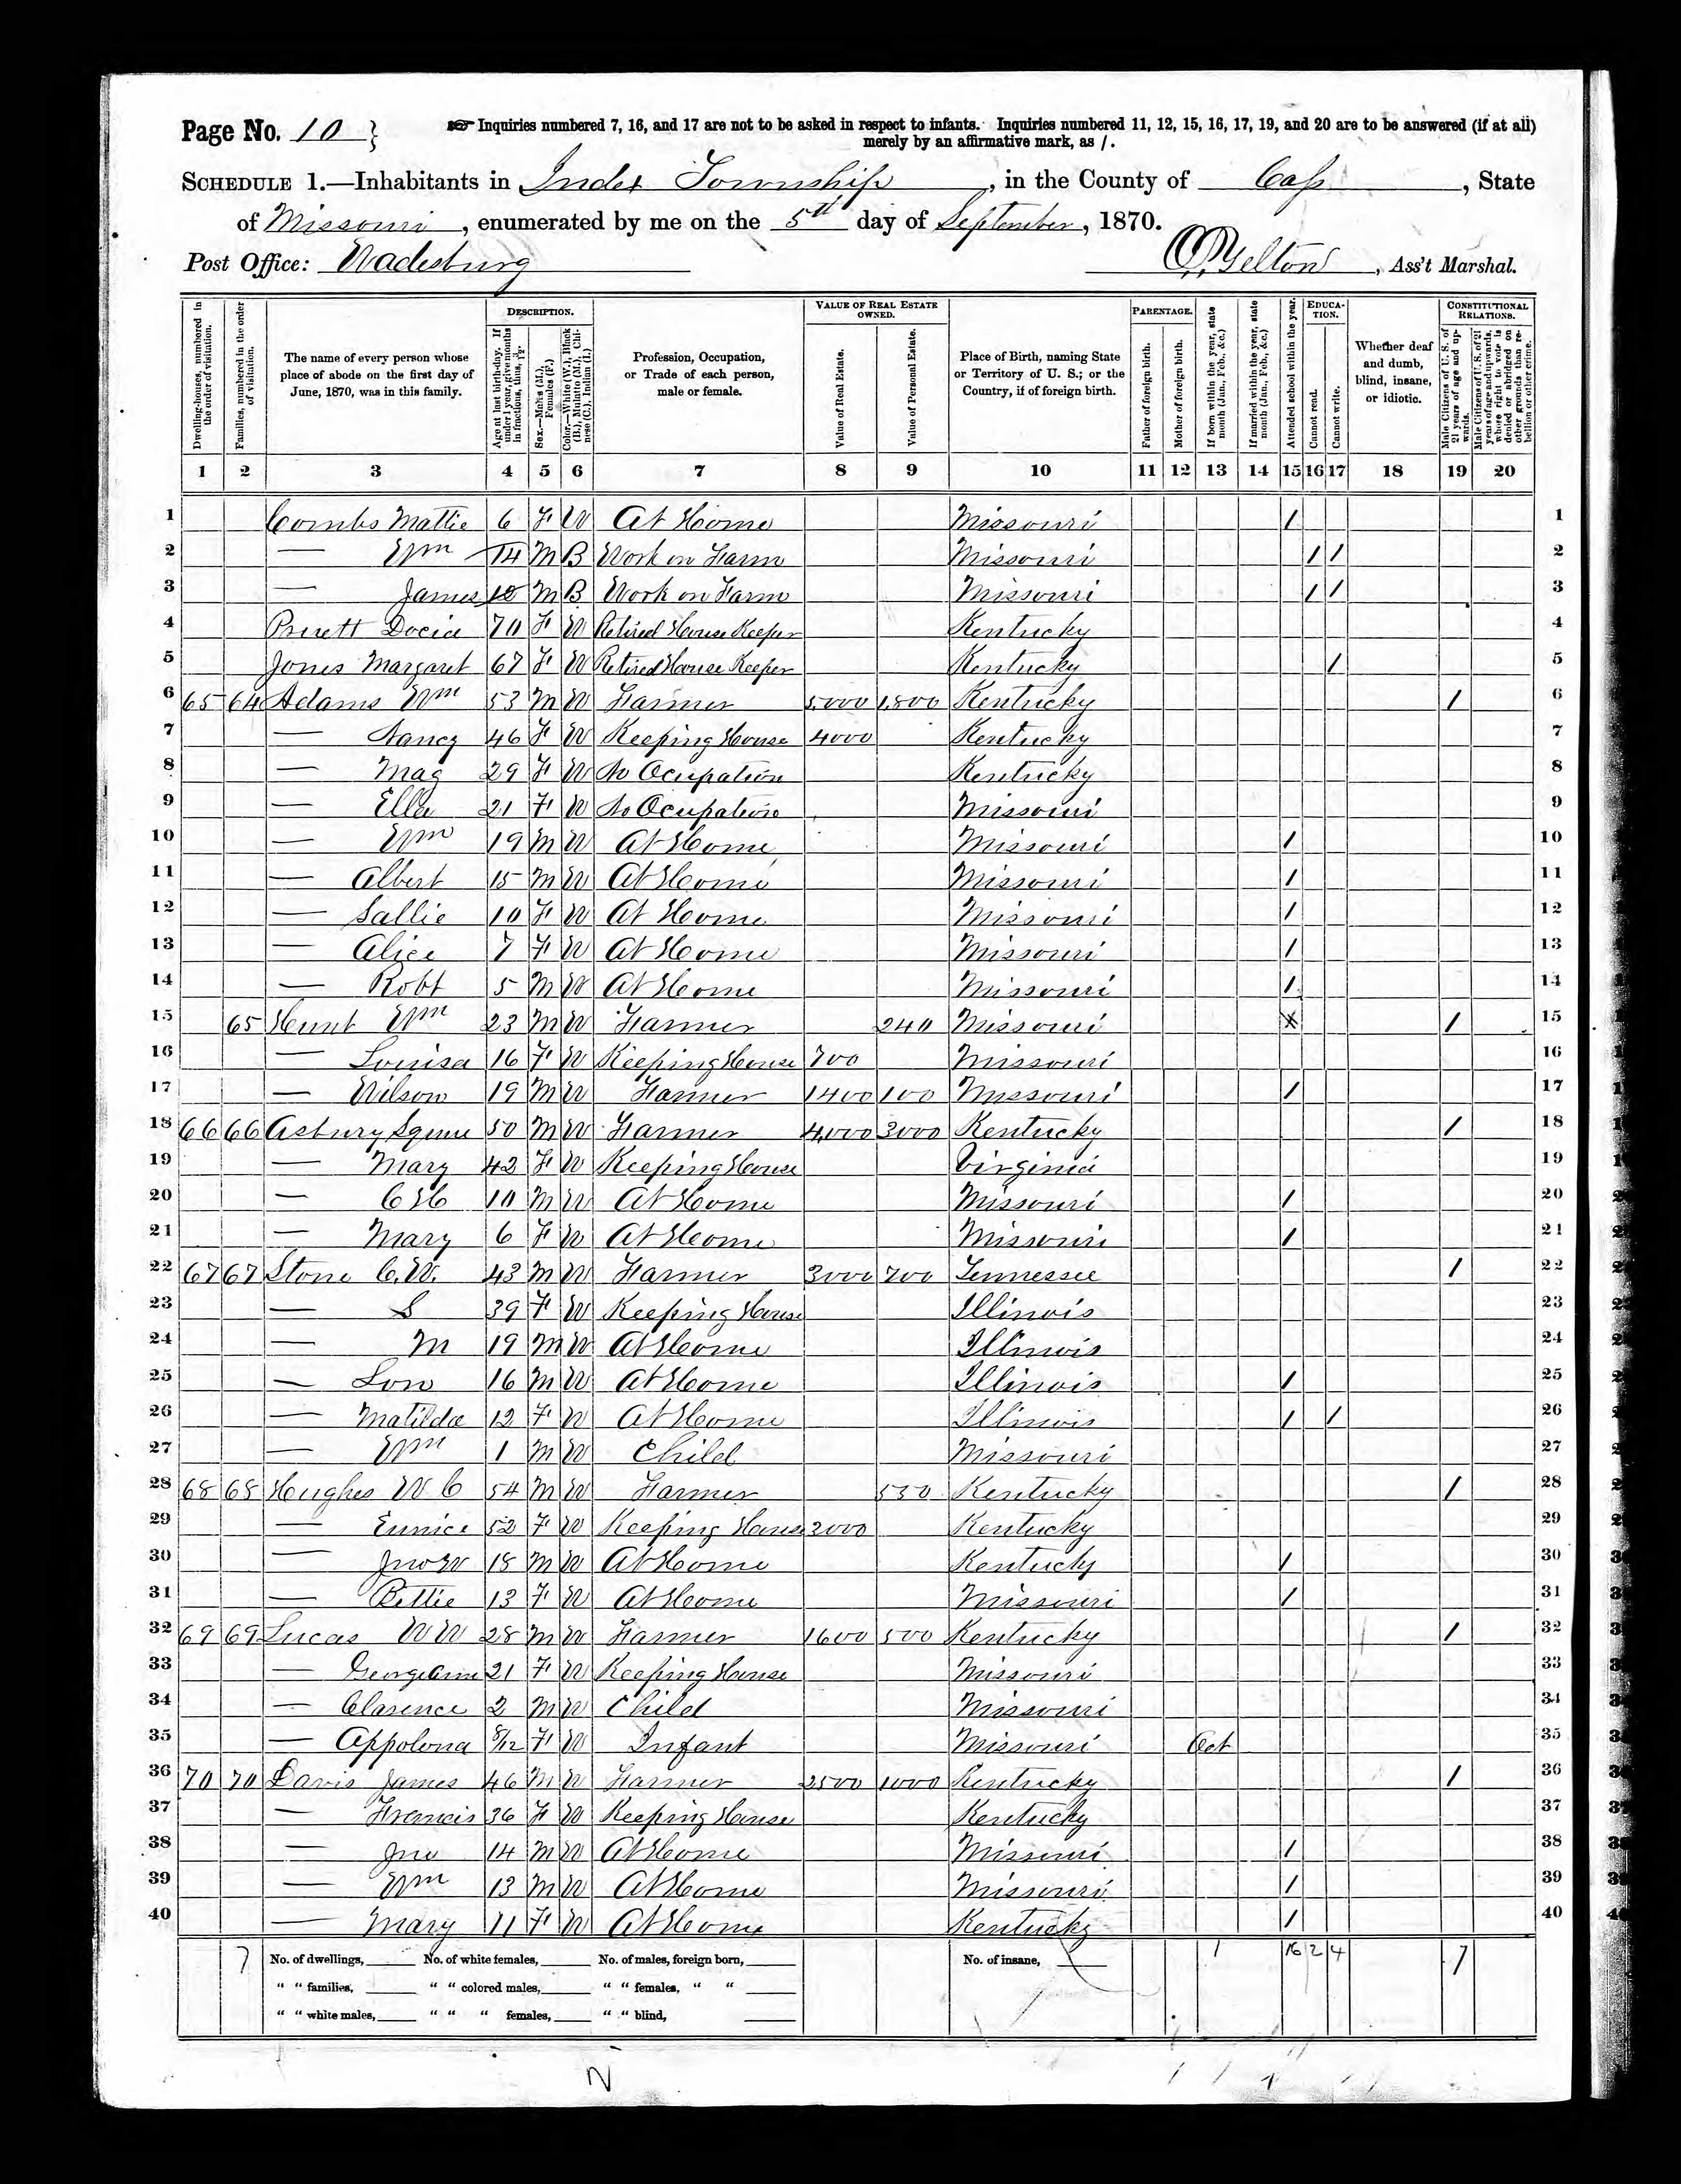 Page No. 10 }
☞ Inquiries numbered 7, 16, and 17 are not to be asked in respect to infants. Inquiries numbered 11, 12, 15, 16, 17, 19, and 20 are to be answered (if at all)
merely by an affirmative mark, as /.
SCHEDULE 1.—Inhabitants in Index Township, in the County of Cass, State
of Missouri, enumerated by me on the 5th day of September, 1870.
Post Office: Wadesburg Yelton, Ass't Marshal.
Dwelling-houses, numbered in the order of visitation.
Families, numbered in the order of visitation.
The name of every person whose place of abode on the first day of June, 1870, was in this family.
DESCRIPTION.
Age at last birth-day. If under 1 year, give months in fractions, thus, 3/12.
Sex.—Males (M.), Females (F.)
Color.—White (W.), Black (B.), Mulatto (M.), Chinese (C.), Indian (I.)
Profession, Occupation, or Trade of each person, male or female.
VALUE OF REAL ESTATE OWNED.
Value of Real Estate.
Value of Personal Estate.
Place of Birth, naming State or Territory of U. S.; or the Country, if of foreign birth.
PARENTAGE.
Father of foreign birth.
Mother of foreign birth.
If born within the year, state month (Jan., Feb., &c.)
If married within the year, state month (Jan., Feb., &c.)
Attended school within the year.
EDUCATION.
Cannot read.
Cannot write.
Whether deaf and dumb, blind, insane, or idiotic.
CONSTITUTIONAL RELATIONS.
Male Citizens of U. S. of 21 years of age and upwards.
Male Citizens of U. S. of 21 years of age and upwards, whose right to vote is denied or abridged on other grounds than rebellion or other crime.
1 2 3 4 5 6 7 8 9 10 11 12 13 14 15 16 17 18 19 20
1 Combs Mattie 6 F W At Home Missouri / 1
2 — Wm 14 M B Work on Farm Missouri / / 2
3 — James M B Work on Farm Missouri / / 3
4 Pruett Docia 70 F W Retired House Keeper Kentucky 4
5 Jones Margaret 67 F W Retired House Keeper Kentucky / 5
6 65 64 Adams Wm 53 M W Farmer 5,000 1,800 Kentucky / 6
7 — Nancy 46 F W Keeping House 4000 Kentucky 7
8 — Mag 29 F W No Ocupation Kentucky 8
9 — Ella 21 F W No Ocupation Missouri 9
10 — Wm 19 M W At Home Missouri / 10
11 — Albert 15 M W At Home Missouri / 11
12 — Sallie 10 F W At Home Missouri / 12
13 — Alice 7 F W At Home Missouri / 13
14 — Robt 5 M W At Home Missouri / 14
15 65 Hunt Wm 23 M W Farmer 240 Missouri X / 15
16 — Louisa 16 F W Keeping House 700 Missouri 16
17 — Wilson 19 M W Farmer 1400 100 Missouri / 17
18 66 66 Asbury Squire 50 M W Farmer 4,000 3000 Kentucky / 18
19 — Mary 42 F W Keeping House Virginia 19
20 — C H 10 M W At Home Missouri / 20
21 — Mary 6 F W At Home Missouri / 21
22 67 67 Stone C. W. 43 M W Farmer 3000 700 Tennessee / 22
23 — S 39 F W Keeping House Illinois 23
24 — M 19 M W At Home Illinois 24
25 — Lon 16 M W At Home Illinois / 25
26 — Matilda 12 F W At Home Illinois / / 26
27 — Wm 1 M W Child Missouri 27
28 68 68 Hughes W C 54 M W Farmer 530 Kentucky / 28
29 — Eunice 52 F W Keeping House 3000 Kentucky 29
30 — Jno W 18 M W At Home Kentucky / 30
31 — Bettie 13 F W At Home Missouri / 31
32 69 69 Lucas W W 28 M W Farmer 1600 500 Kentucky / 32
33 — Georgeann 21 F W Keeping House Missouri 33
34 — Clarence 2 M W Child Missouri 34
35 — Appolona 8/12 F W Infant Missouri Oct 35
36 70 70 Davis James 46 M W Farmer 2500 1000 Kentucky / 36
37 — Francis 36 F W Keeping House Kentucky 37
38 — Jno 14 M W At Home Missouri / 38
39 — Wm 13 M W At Home Missouri / 39
40 — Mary 11 F W At Home Kentucky / 40
7 No. of dwellings, No. of white females, No. of males, foreign born, No. of insane, 1 16 2 4 7
" " families, " " colored males, " " females, " "
" " white males, " " " females, " " blind,